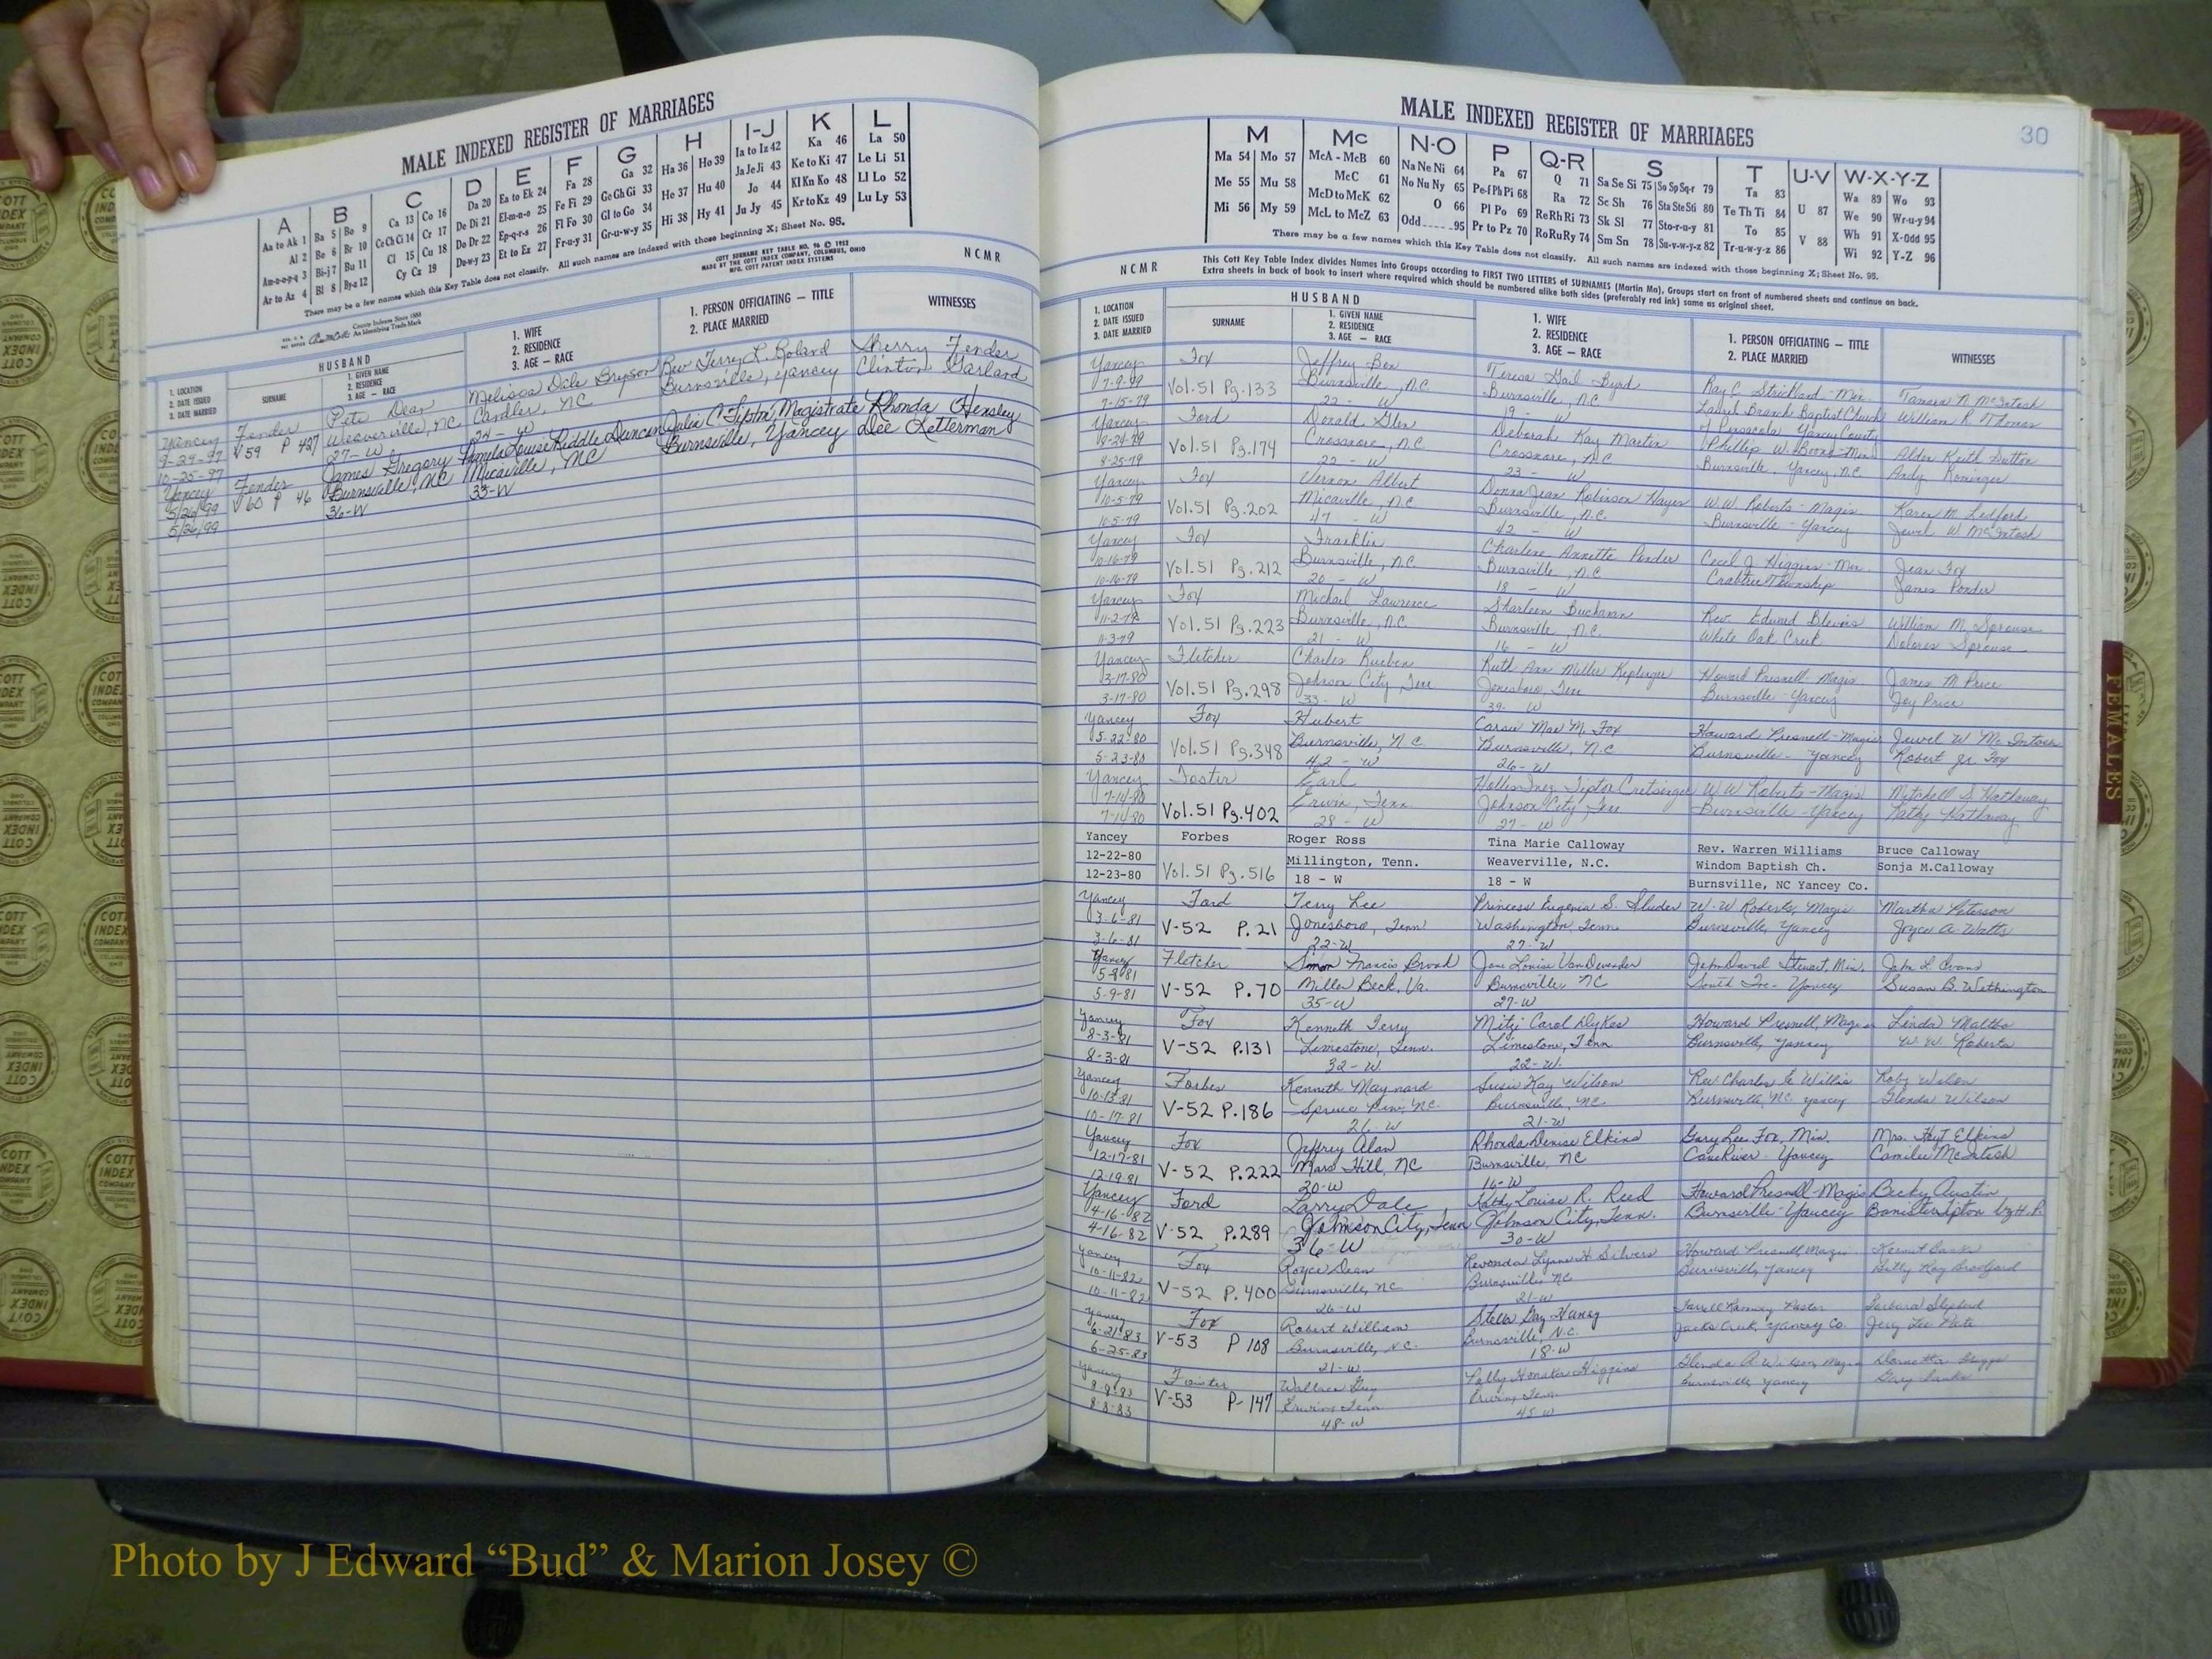 MALE INDEXED REGISTER OF MARRIAGES
A B C D E F G H I-J K L
Aa to Ak 1 Ba 5 Bo 9 Ca 13 Co 16 Da 20 Ea to Ek 24 Fa 28 Ga 32 Ha 36 Ho 39 Ia to Iz 42 Ka 46 La 50
Al 2 Be 6 Br 10 Ce Ch Ci 14 Cr 17 De Di 21 El-m-n-o 25 Fe Fi 29 Ge Gh Gi 33 He 37 Hu 40 Ja Je Ji 43 Ke to Ki 47 Le Li 51
Am-n-o-p-q 3 Bi-j 7 Bu 11 Cl 15 Cu 18 Do Dr 22 Ep-q-r-s 26 Fl Fo 30 Gl to Go 34 Hi 38 Hy 41 Jo 44 Kl Kn Ko 48 Ll Lo 52
Ar to Az 4 Bl 8 By-z 12 Cy Cz 19 Du-w-y 23 Et to Ez 27 Fr-u-y 31 Gr-u-w-y 35 Ju Jy 45 Kr to Kz 49 Lu Ly 53
There may be a few names which this Key Table does not classify. All such names are indexed with those beginning X; Sheet No. 95.
COTT SURNAME KEY TABLE NO. 96 © 1952
MADE BY THE COTT INDEX COMPANY, COLUMBUS, OHIO
MFG. COTT PATENT INDEX SYSTEMS
NCMR
County Indexes Since 1888
An Identifying Trade Mark
1. LOCATION
2. DATE ISSUED
3. DATE MARRIED
HUSBAND
SURNAME
1. GIVEN NAME
2. RESIDENCE
3. AGE — RACE
1. WIFE
2. RESIDENCE
3. AGE — RACE
1. PERSON OFFICIATING — TITLE
2. PLACE MARRIED
WITNESSES
Yancey Fender Pete Dean Melissa Dale Bryson Rev Terry L. Roland Sherry Fender
9-29-97 V59 P 437 Weaverville, NC Candler, NC Burnsville, Yancey Clinton Garland
10-25-97 27-W 24-W
Yancey Fender James Gregory Pamela Louise Riddle Duncan Julia C Tipton, Magistrate Rhonda Hensley
5/26/99 V60 P 46 Burnsville, NC Micaville, NC Burnsville, Yancey Dee Letterman
5/26/99 36-W 33-W
MALE INDEXED REGISTER OF MARRIAGES
30
M Mc N-O P Q-R S T U-V W-X-Y-Z
Ma 54 Mo 57 McA - McB 60 Na Ne Ni 64 Pa 67 Q 71 Sa Se Si 75 So Sp Sq-r 79 Ta 83 Wa 89 Wo 93
Me 55 Mu 58 McC 61 No Nu Ny 65 Pe-f Ph Pi 68 Ra 72 Sc Sh 76 Sta Ste Sti 80 Te Th Ti 84 U 87 We 90 Wr-u-y 94
Mi 56 My 59 McD to McK 62 O 66 Pl Po 69 Re Rh Ri 73 Sk Sl 77 Sto-r-u-y 81 To 85 Wh 91 X-Odd 95
McL to McZ 63 Odd 95 Pr to Pz 70 Ro Ru Ry 74 Sm Sn 78 Su-v-w-y-z 82 Tr-u-w-y-z 86 V 88 Wi 92 Y-Z 96
There may be a few names which this Key Table does not classify. All such names are indexed with those beginning X; Sheet No. 95.
NCMR
This Cott Key Table Index divides Names into Groups according to FIRST TWO LETTERS of SURNAMES (Martin Ma), Groups start on front of numbered sheets and continue on back.
Extra sheets in back of book to insert where required which should be numbered alike both sides (preferably red ink) same as original sheet.
1. LOCATION
2. DATE ISSUED
3. DATE MARRIED
HUSBAND
SURNAME
1. GIVEN NAME
2. RESIDENCE
3. AGE — RACE
1. WIFE
2. RESIDENCE
3. AGE — RACE
1. PERSON OFFICIATING — TITLE
2. PLACE MARRIED
WITNESSES
Yancey Fox Jeffrey Ben Teresa Gail Byrd Ray C Strickland - Min. Tamara N. McIntosh
7-9-79 Vol.51 Pg.133 Burnsville, N.C. Burnsville, N.C. Laurel Branch Baptist Church William R. Thomas
7-15-79 22 - W 19 - W of Pensacola Yancey County
Yancey Ford Donald Glen Deborah Kay Martin Phillip W. Boone-Min
8-24-79 Vol.51 Pg.174 Crossnore, N.C. Crossnore, N.C. Burnsville, Yancey, N.C. Alden Keith Dutton
8-25-79 22 - W 23 - W Andy Koninger
Yancey Fox Vernon Albert Donna Jean Robinson Hayes W.W. Roberts-Magis. Karen M. Ledford
10-5-79 Vol.51 Pg.202 Micaville, N.C. Burnsville, N.C. Burnsville - Yancey Jewel W McIntosh
10-5-79 47 - W 42 - W
Yancey Fox Franklin Charlene Annette Ponder Cecil J Higgins-Min. Jean Fox
10-16-79 Vol.51 Pg.212 Burnsville, N.C. Burnsville, N.C. Crabtree Township James Ponder
10-16-79 20 - W 18 - W
Yancey Fox Michael Lawrence Sharleen Buchanan Rev. Edward Blevins William M. Sprouse
11-2-79 Vol.51 Pg.223 Burnsville, N.C. Burnsville, N.C. White Oak Creek Dolores Sprouse
11-3-79 21 - W 16 - W
Yancey Fletcher Charles Rueben Ruth Ann Miller Keplinger Howard Presnell-Magis. James M Price
3-17-80 Vol.51 Pg.298 Johnson City, Tenn Jonesboro, Tenn Burnsville-Yancey Joy Price
3-17-80 33 - W 39 - W
Yancey Fox Hubert Carsie Mae M. Fox Howard Presnell-Magis Jewel W McIntosh
5-22-80 Vol.51 Pg.348 Burnsville, N.C. Burnsville, N.C Burnsville - Yancey Robert Jr. Fox
5-23-80 42 - W 26 - W
Yancey Foster Earl Tipton W W Roberts-Magis. Mitchell S. Hathaway
7-14-80 Vol.51 Pg.402 Erwin, Tenn Johnson City, Tenn Burnsville - Yancey Kathy Hathaway
7-14-80 28 - W 27 - W
Yancey Forbes Roger Ross Tina Marie Calloway Rev. Warren Williams Bruce Calloway
12-22-80 Vol.51 Pg.516 Millington, Tenn. Weaverville, N.C. Windom Baptish Ch. Sonja M.Calloway
12-23-80 18 - W 18 - W Burnsville, NC Yancey Co.
Yancey Ford Terry Lee Princess Eugenia S. Sluder W. W Roberts, Magis Martha Peterson
3-6-81 V-52 P.21 Jonesboro, Tenn Washington, Tenn Burnsville, Yancey Joyce A. Watts
3-6-81 22-W 27-W
Yancey Fletcher Simon Francis Broad Jane Louise VanDevender John David Stewart, Min. John L Evans
5-9-81 V-52 P.70 Beck, Va. Burnsville, NC South Toe- Yancey Susan B. Wethington
5-9-81 35-W 27-W
Yancey Fox Kenneth Terry Mitzi Carol Dykes Howard Presnell, Magis Linda Maltba
8-3-81 V-52 P.131 Limestone, Tenn. Limestone, Tenn Burnsville, Yancey W. W. Roberts
8-3-81 32-W 22-W
Yancey Forbes Kenneth Maynard Susie Kay Wilson Rev Charles E Willis Roby Wilson
10-13-81 V-52 P.186 Spruce Pine, NC. Burnsville, NC. Burnsville, NC Yancey Glenda Wilson
10-17-81 26-W 21-W
Yancey Fox Jeffrey Alan Rhonda Denise Elkins Gary Lee Fox, Min. Mrs. Hoyt Elkins
12-17-81 V-52 P.222 Mars Hill, NC Burnsville, NC Cane River - Yancey Camilee McIntosh
12-19-81 20-W 16-W
Yancey Ford Larry Dale Kathy Louise R. Reed Howard Presnell-Magis Becky Austin
4-16-82 V-52 P.289 Johnson City, Tenn Johnson City, Tenn. Burnsville-Yancey Banister Tipton by H.P.
4-16-82 36-W 30-W
Yancey Fox Royce Dean Revonda Lynne H. Silvers Howard Presnell, Magis Kermit Banks
10-11-82 V-52 P.400 Burnsville, NC Burnsville, NC Burnsville, Yancey Betty Kay Bradford
10-11-82 26-W 21-W
Yancey Fox Robert William Stella Gay Haney Ramsey Pastor Barbara Shepherd
6-21-83 V-53 P 108 Burnsville, N.C. Burnsville, N.C. Jacks Creek, Yancey Co. Jerry Lee Pate
6-25-83 21-W 18-W
Yancey Foister Wallace Guy Higgins Glenda A. Wilson, Magis
8-8-83 V-53 P-147 Erwin, Tenn Erwin, Tenn Burnsville, Yancey Gary Banks
8-8-83 48-W 45-W
FEMALES
Photo by J Edward “Bud” & Marion Josey ©